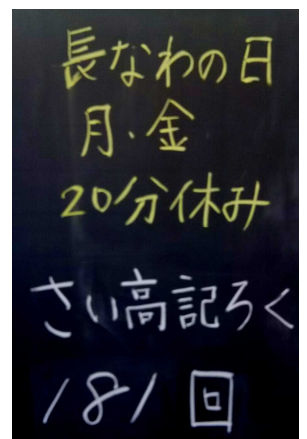 長なわの日
月・金
20分休み
さい高記ろく
181回